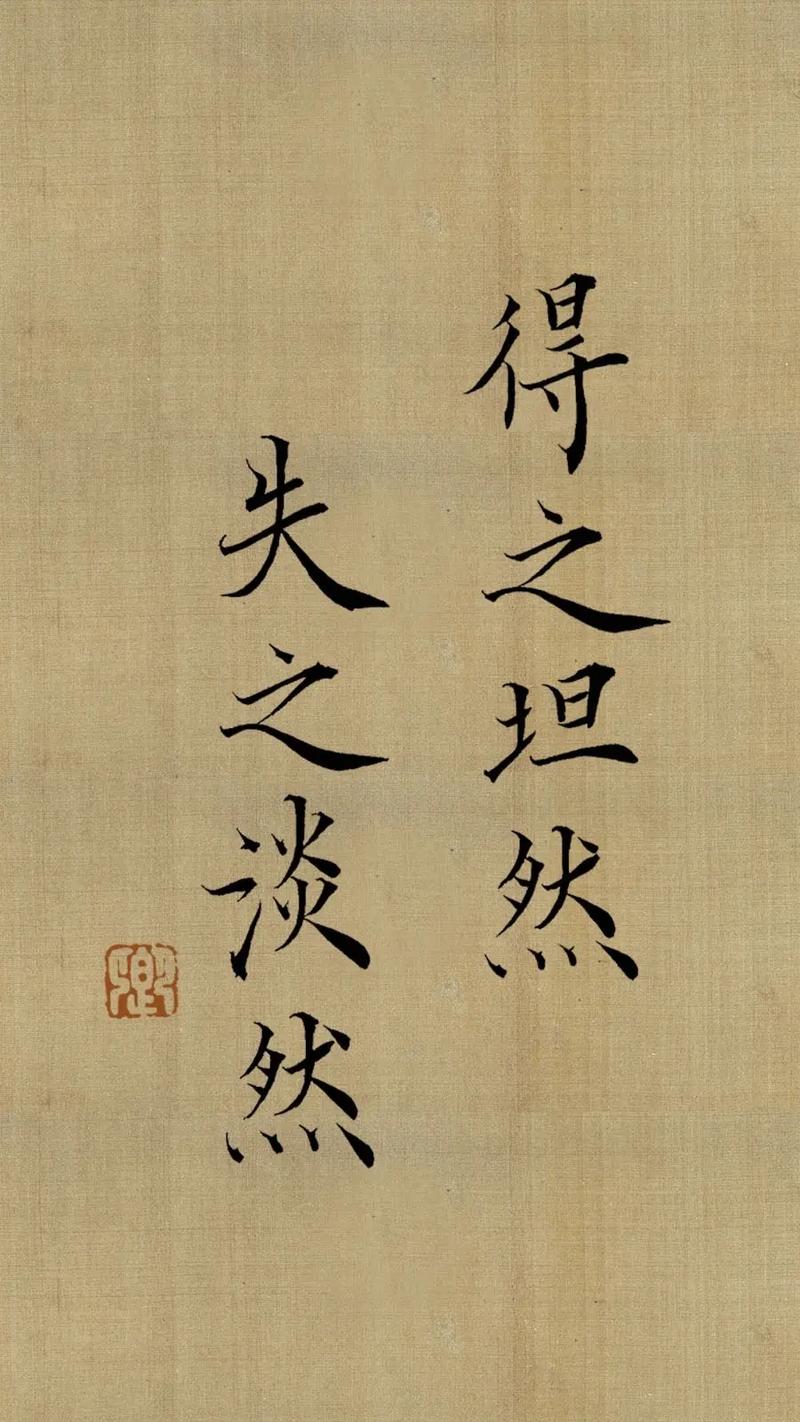 得之坦然
失之谈然